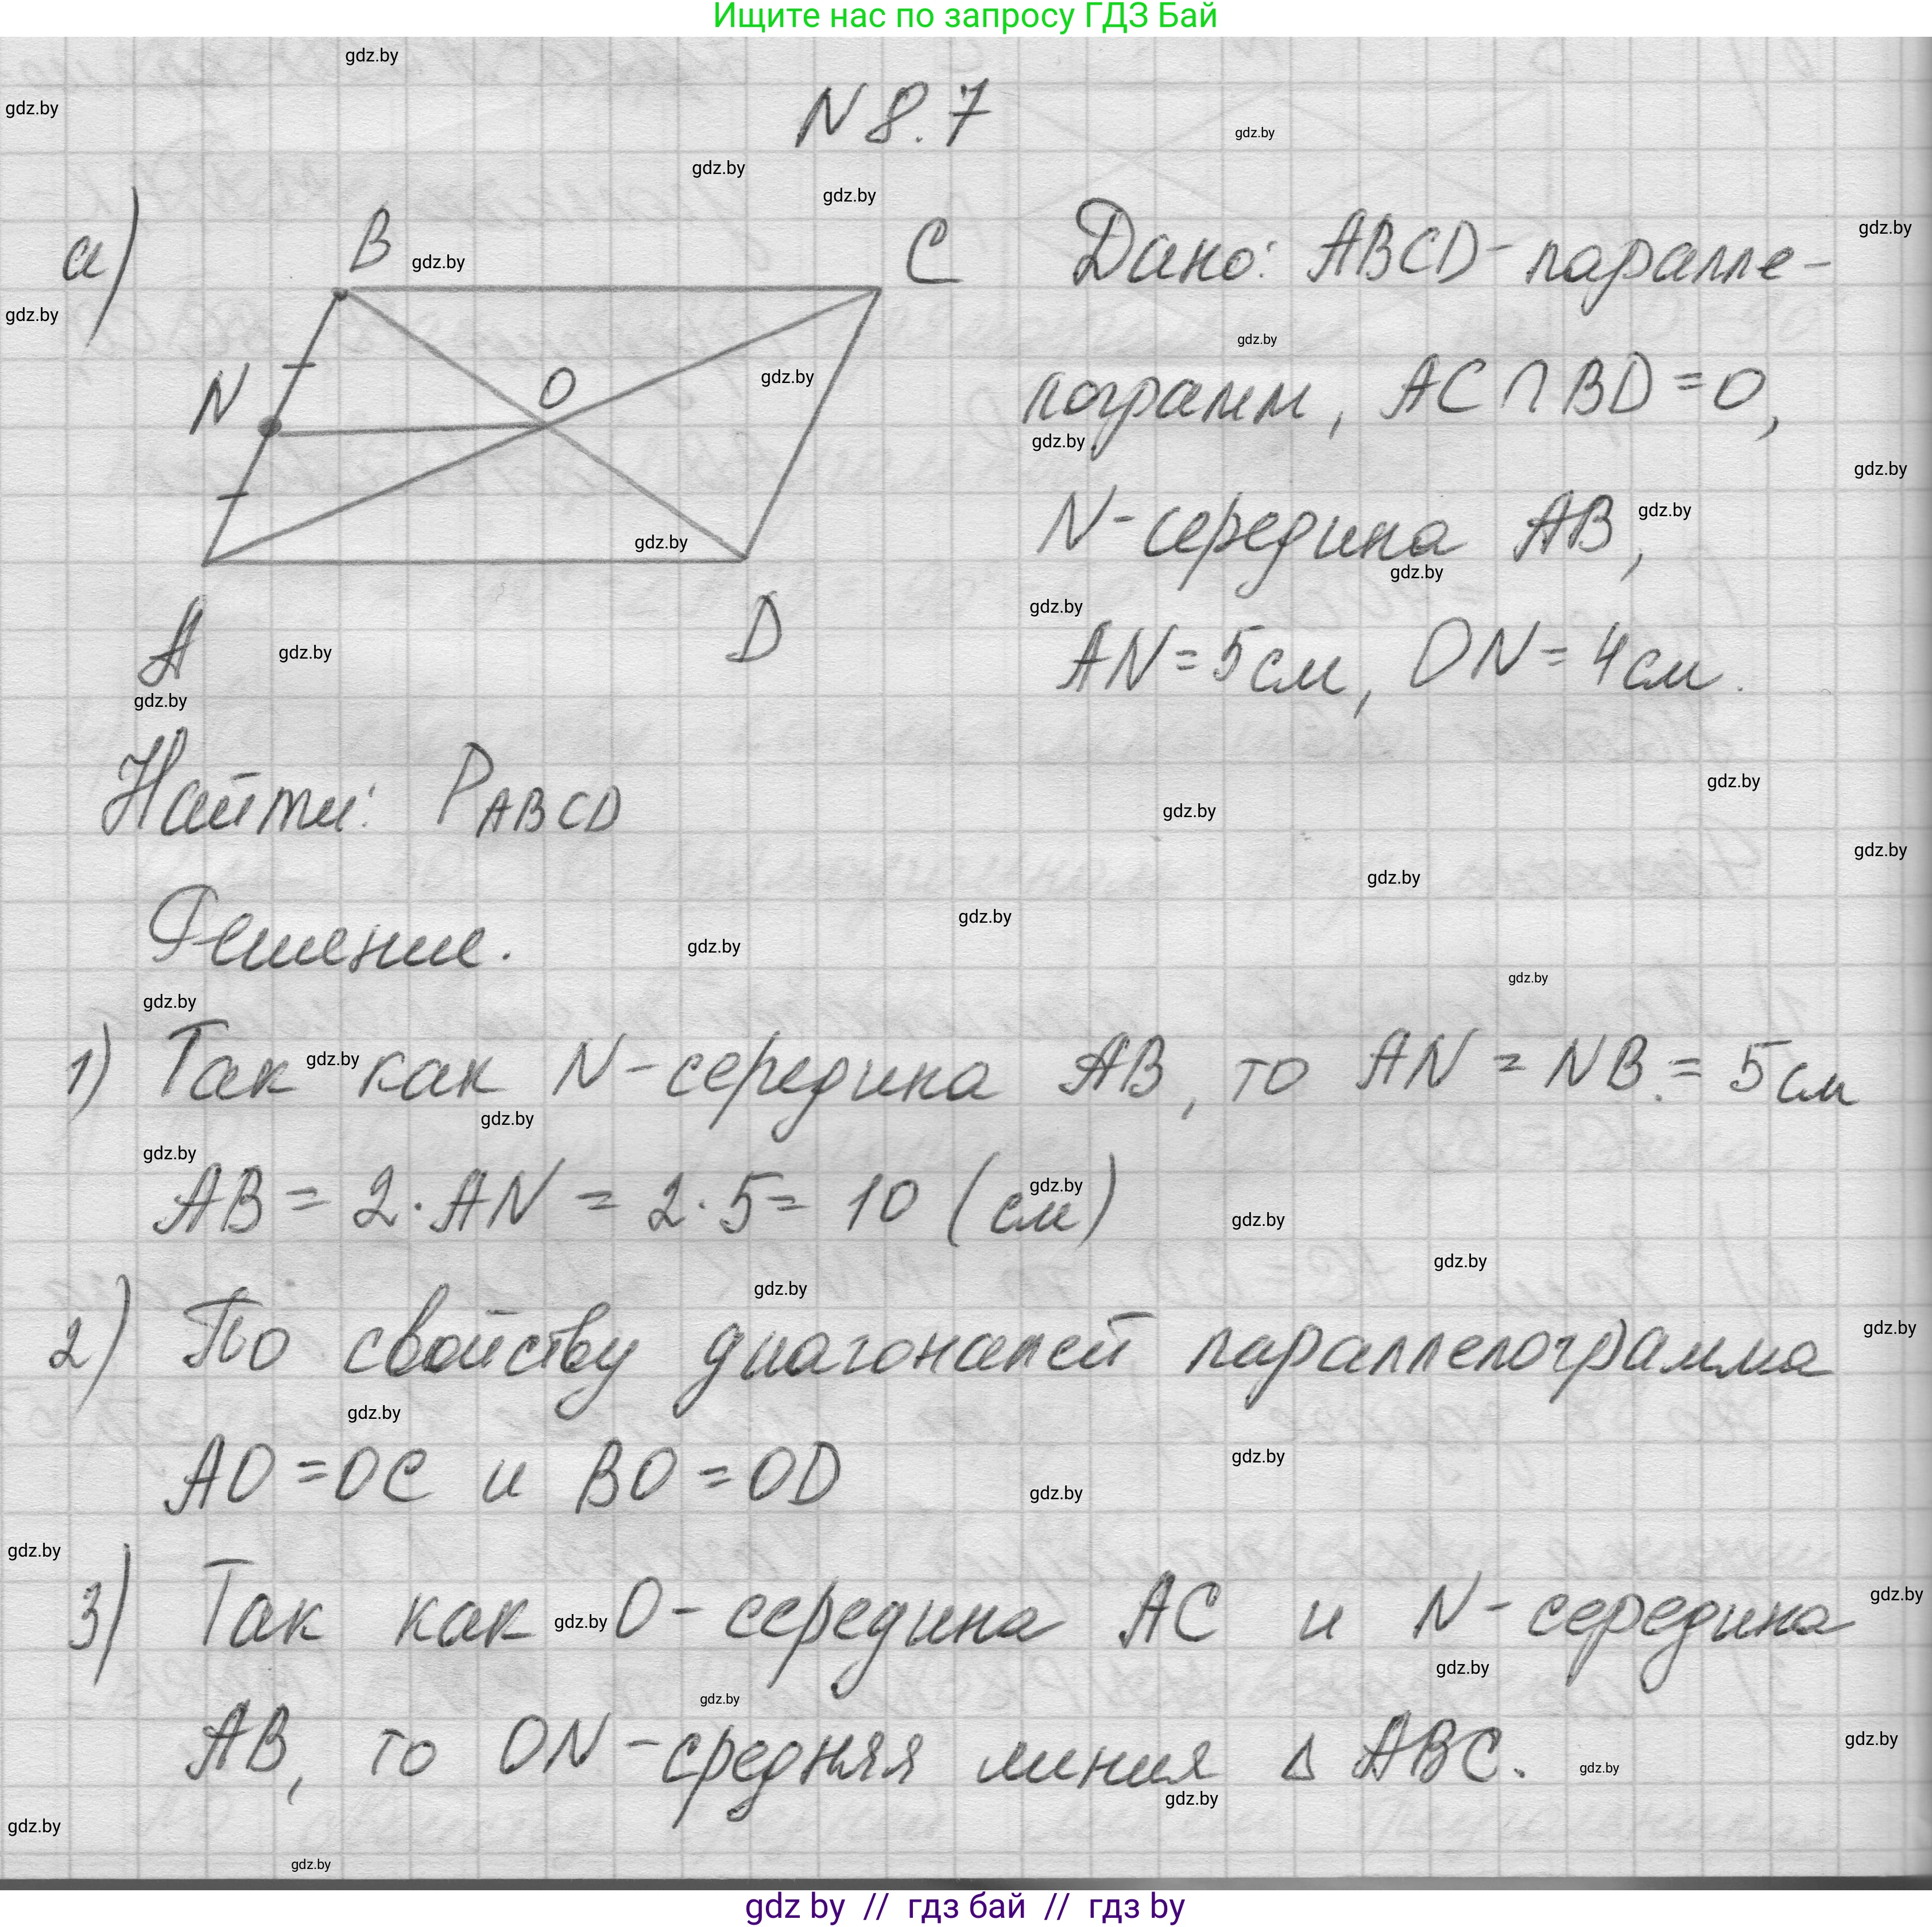 Ищите нас по запросу ГДЗ Бай
N 8.7
а)
B
C
N
O
A
D
Дано: ABCD - паралле-
лограмм, AC ∩ BD = O,
N - середина AB,
AN = 5 см, ON = 4 см.
Найти: P ABCD
Решение.
1) Так как N - середина AB, то AN = NB = 5 см
AB = 2 · AN = 2 · 5 = 10 (см)
2) По свойству диагоналей параллелограмма
AO = OC и BO = OD
3) Так как O - середина AC и N - середина
AB, то ON - средняя линия Δ ABC.
gdz by // гдз бай // гдз by